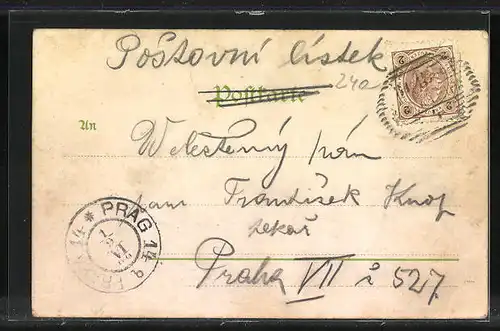 Poštovní lístek
24a
Postkarte
An
Weletěný pán
pan František Knop
lekař
Praha VII č 527
PRAG 14 a
2